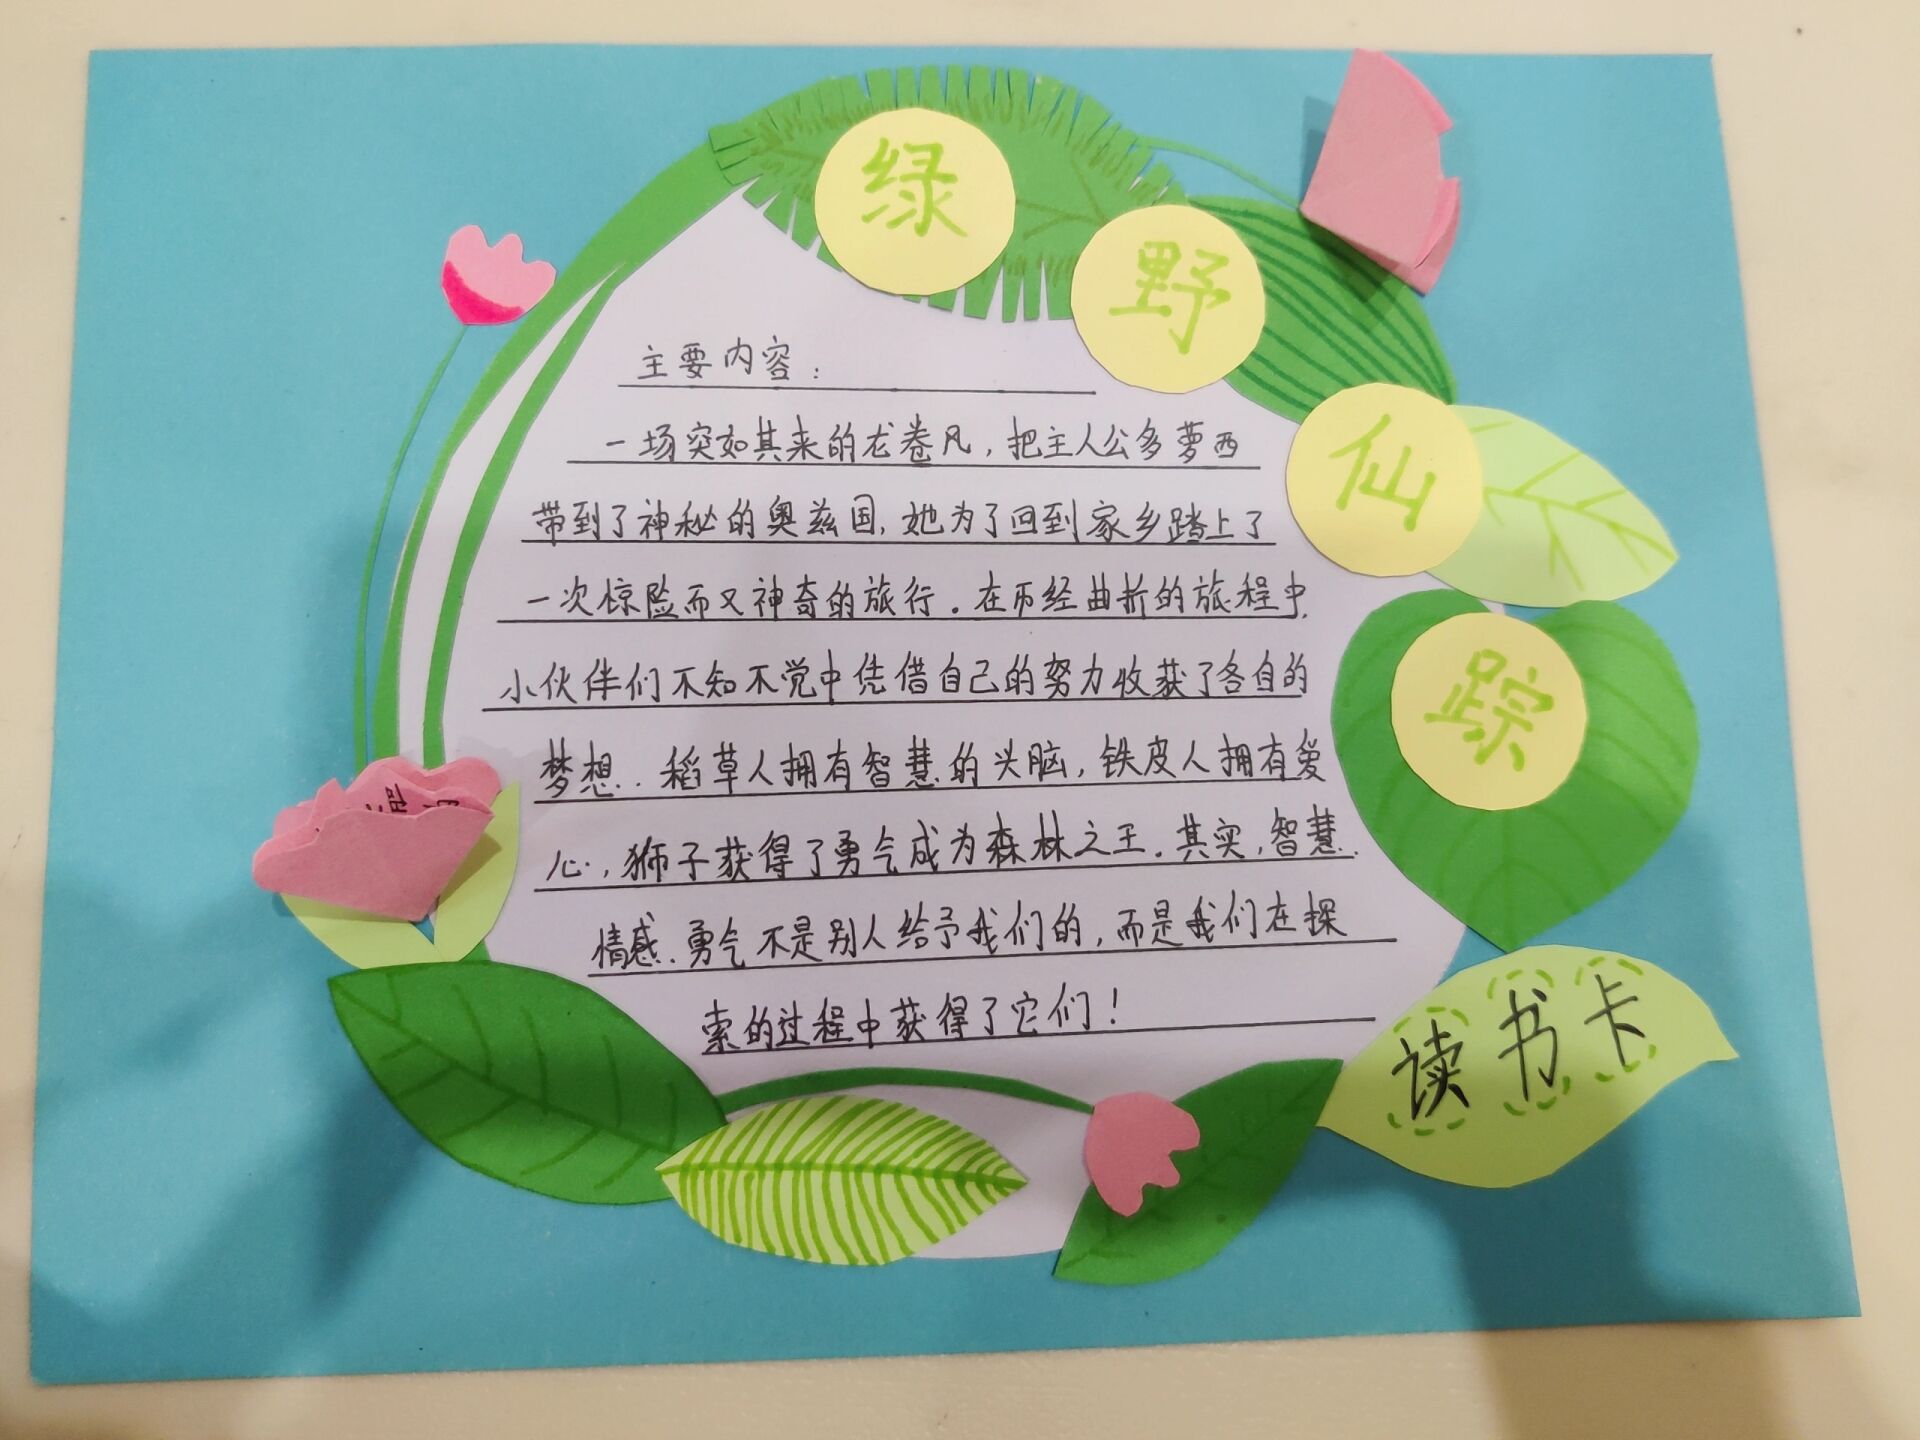 绿野仙踪
主要内容：
一场突如其来的龙卷风，把主人公多萝西
带到了神秘的奥兹国，她为了回到家乡踏上了
一次惊险而又神奇的旅行。在历经曲折的旅程中，
小伙伴们不知不觉中凭借自己的努力收获了各自的
梦想。稻草人拥有智慧的头脑，铁皮人拥有爱
心，狮子获得了勇气成为森林之王。其实，智慧、
情感、勇气不是别人给予我们的，而是我们在探
索的过程中获得了它们！
读书卡